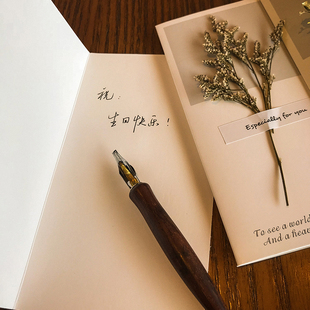 祝:
生日快乐!
Especially for you
To see a world
And a hea